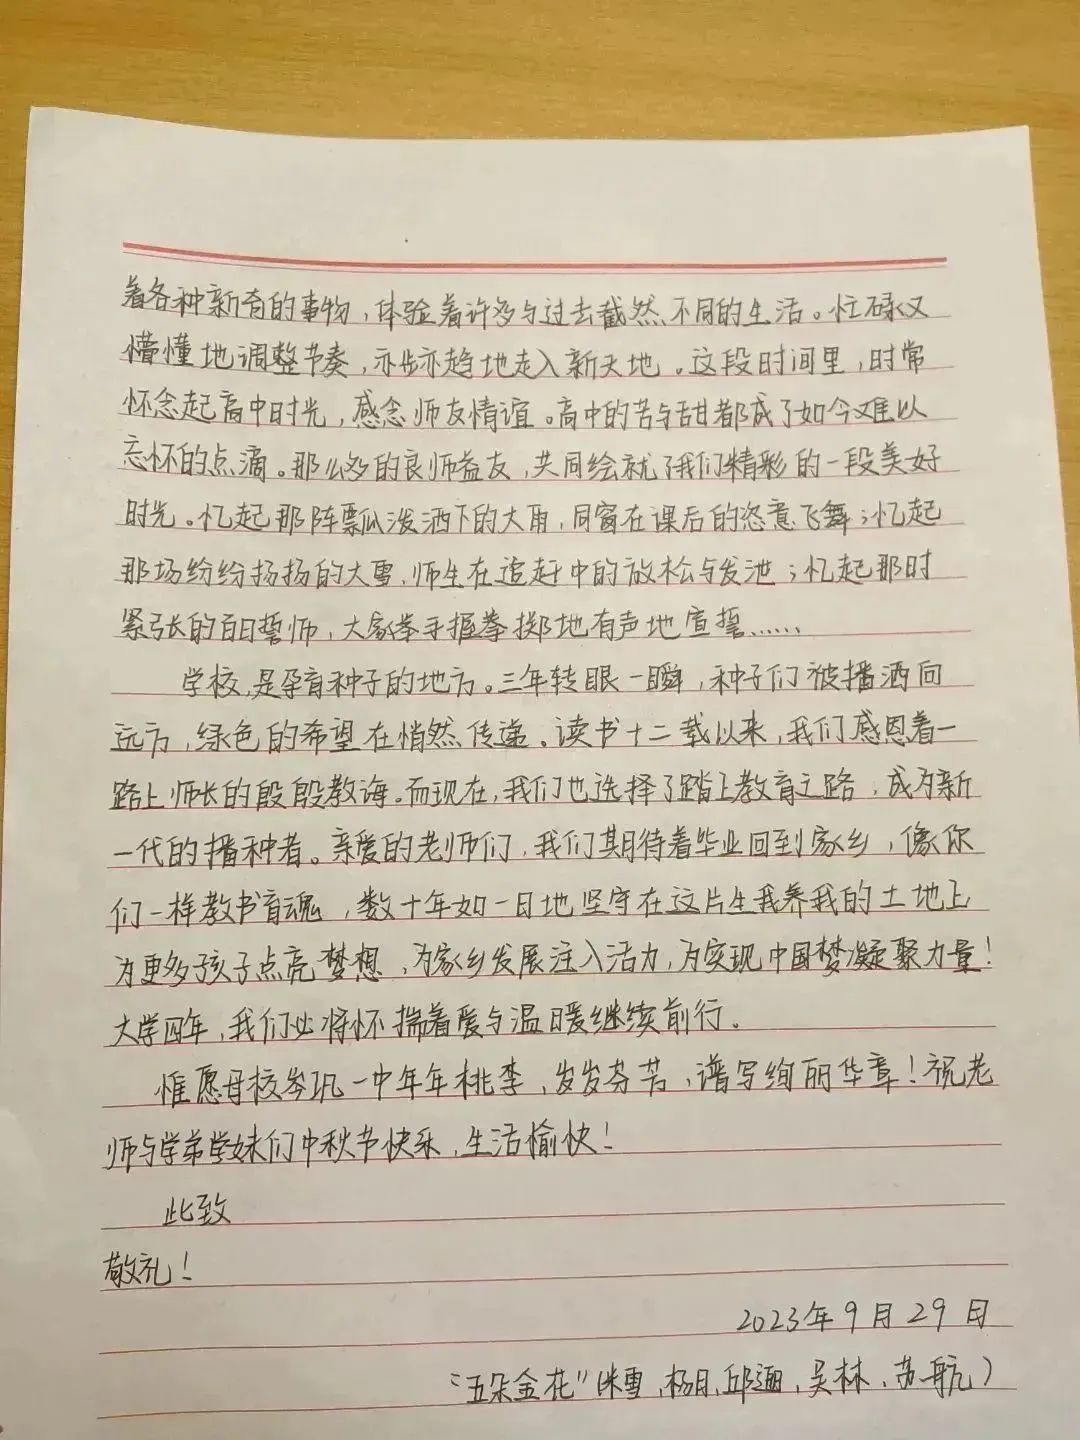 着各种新奇的事物，体验着许多与过去截然不同的生活。忙碌又
懵懂地调整节奏，亦步亦趋地走入新天地。这段时间里，时常
怀念起高中时光，感念师友情谊。高中的苦与甜都成了如今难以
忘怀的点滴。那么多的良师益友，共同绘就了我们精彩的一段美好
时光。忆起那阵瓢泼洒下的大雨，同窗在课后的恣意飞舞；忆起
那场纷纷扬扬的大雪，师生在追赶中的放松与发泄；忆起那时
紧张的百日誓师，大家举手握拳掷地有声地宣誓……
学校，是孕育种子的地方。三年转眼一瞬，种子们被播洒向
远方，绿色的希望在悄然传递。读书十二载以来，我们感恩着一
路上师长的殷殷教诲。而现在，我们也选择了踏上教育之路，成为新
一代的播种者。亲爱的老师们，我们期待着毕业回到家乡，像你
们一样教书育魂，数十年如一日地坚守在这片生我养我的土地上
为更多孩子点亮梦想，为家乡发展注入活力，为实现中国梦凝聚力量！
大学四年，我们必将怀揣着爱与温暖继续前行。
惟愿母校岑巩一中年年桃李，岁岁芬芳，谱写绚丽华章！祝老
师与学弟学妹们中秋节快乐，生活愉快！
此致
敬礼！
2023年9月29日
“五朵金花”（ 雪，杨月，邱 ，吴林、苏航）